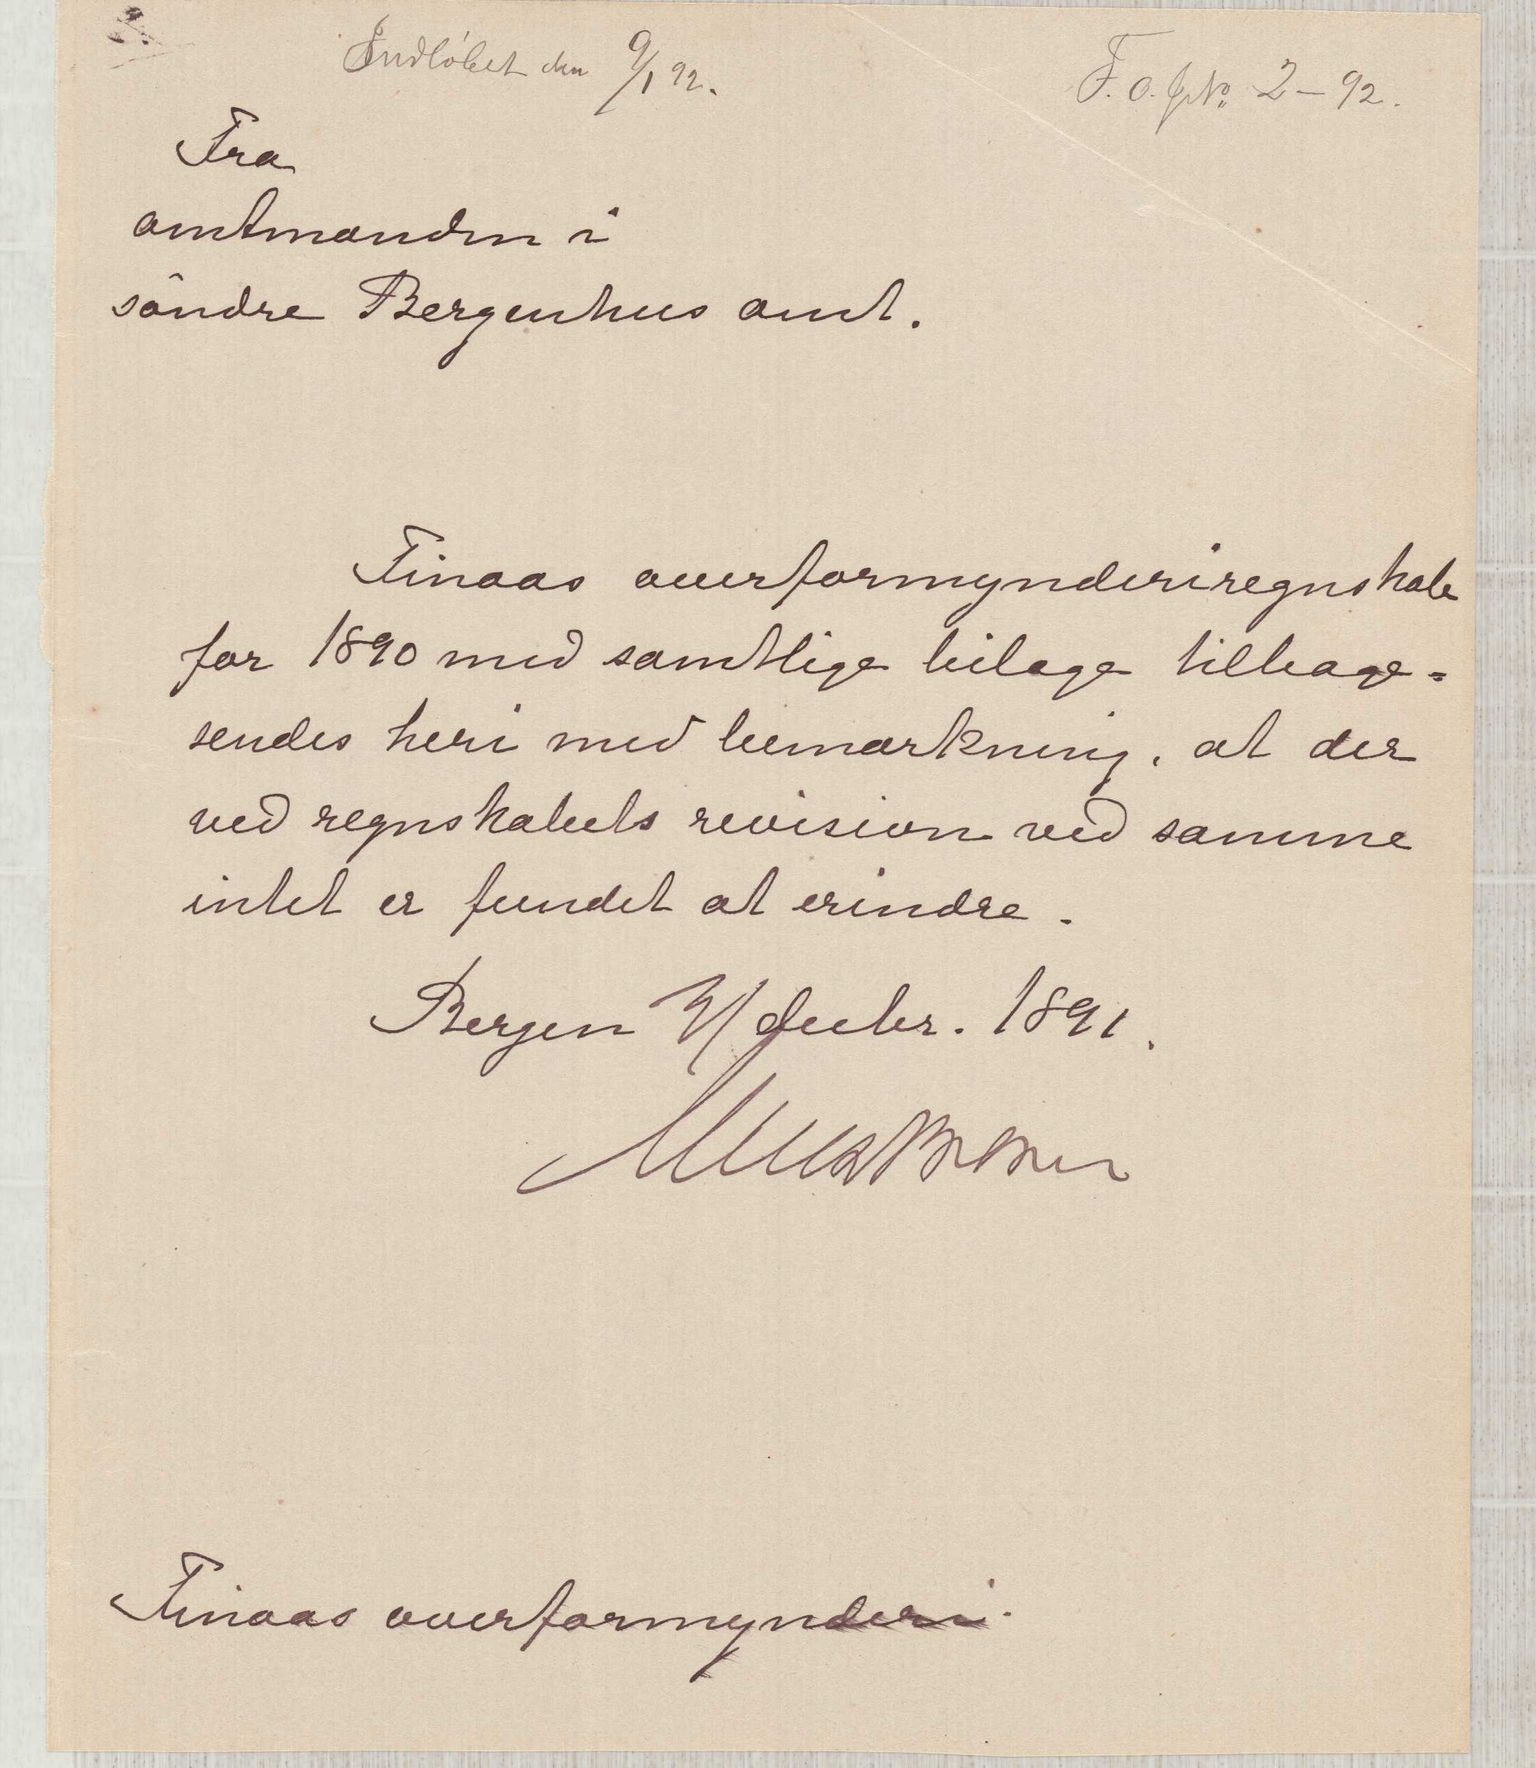 Indløbet den 9/1 92.
F. O. JNo. 2 – 92.
Fra
amtmanden i
söndre Bergenhus amt.
Finaas overformynderiregnskab
for 1890 med samtlige bilage tilbage=
sendes heri med bemærkning, at der
ved regnskabets revision ved samme
intet er fundet at erindre.
Bergen / decbr. 1891.
Finaas overformynderi.